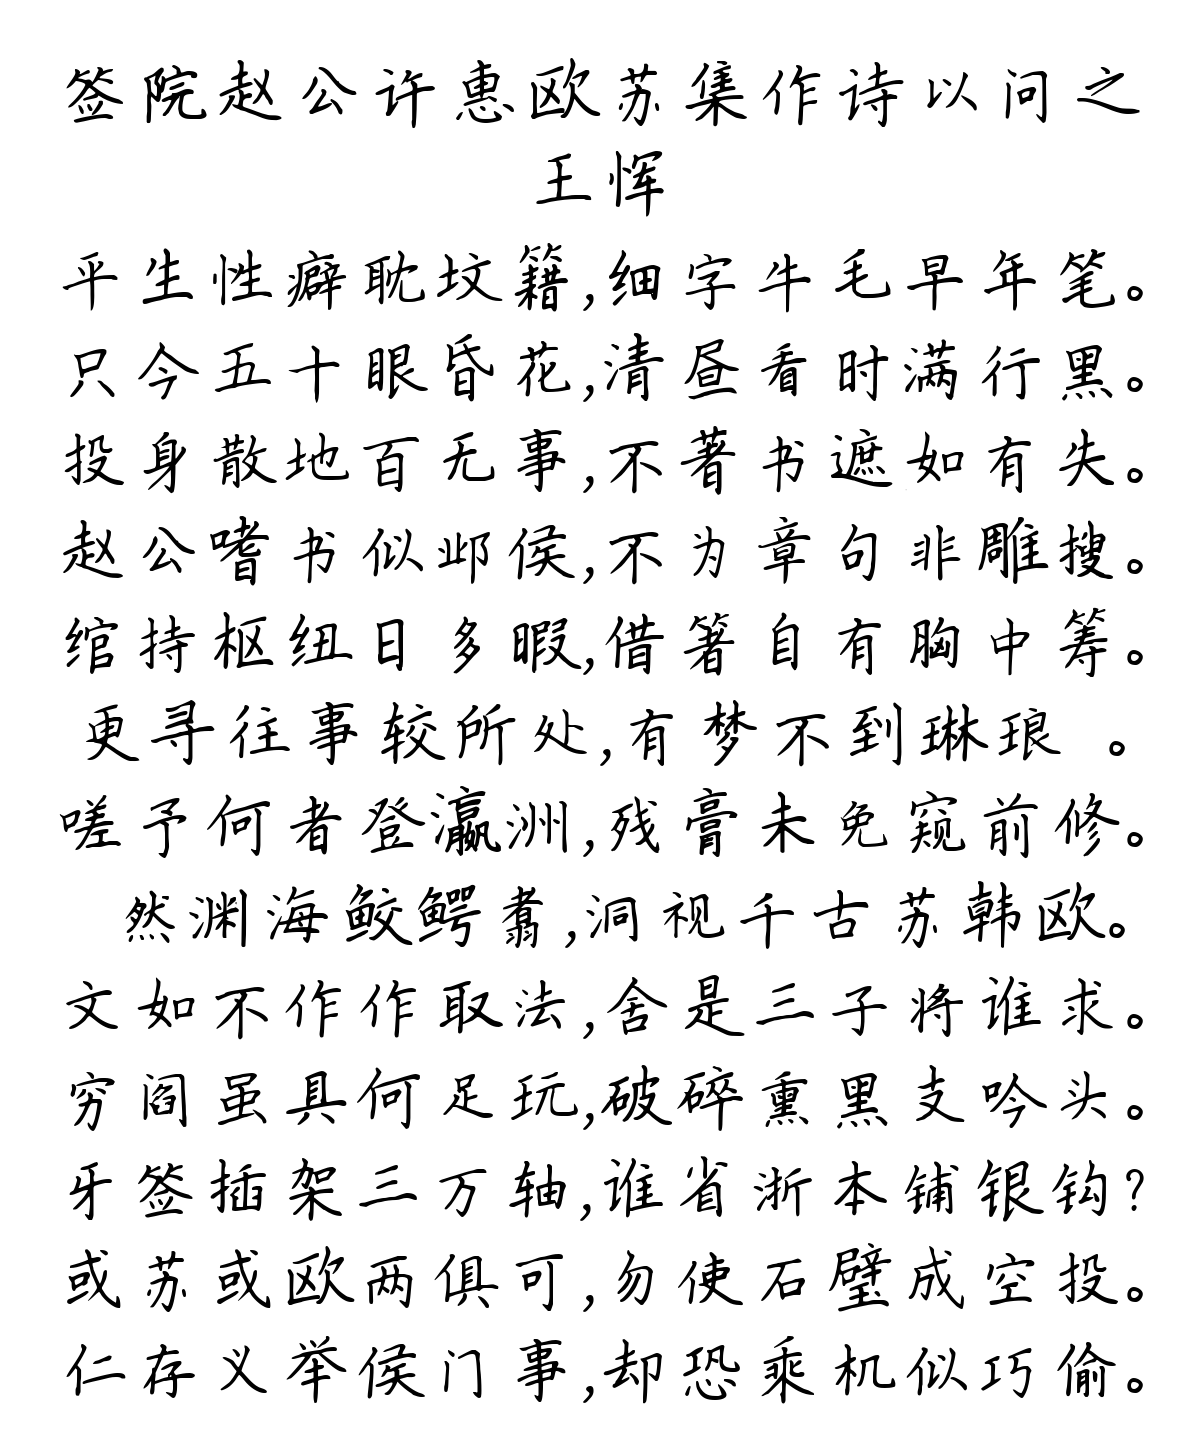 签院赵公许惠欧苏集作诗以问之
王恽
平生性癖耽坟籍,细字牛毛早年笔。
只今五十眼昏花,清昼看时满行黑。
投身散地百无事,不著书遮如有失。
赵公嗜书似邺侯,不为章句非雕搜。
绾持枢纽日多暇,借箸自有胸中筹。
更寻往事较所处,有梦不到琳琅 。
嗟予何者登瀛洲,残膏未免窥前修。
然渊海鲛鳄翥,洞视千古苏韩欧。
文如不作作取法,舍是三子将谁求。
穷阎虽具何足玩,破碎熏黑支吟头。
牙签插架三万轴,谁省浙本铺银钩?
或苏或欧两俱可,勿使石璧成空投。
仁存义举侯门事,却恐乘机似巧偷。